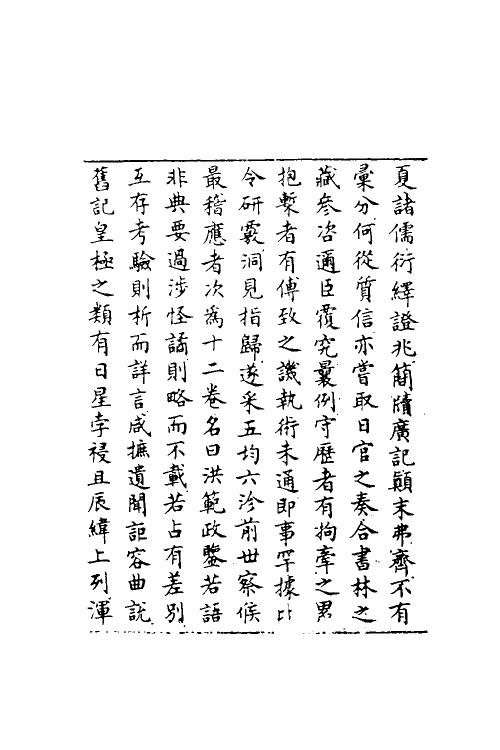 夏諸儒衍繹證兆簡隋廣記顛末弗齊不有
彚分何從質信亦嘗取日官之奏合書林之
藏參咨邇臣覆究曩例守歴者有拘牽之累
抱槧者有傅致之譏執術未通即事罕據比
令研覈洞見指歸遂采五均六沴前世察候
最稽應者次為十二卷名曰洪範政鑒若語
非典要過涉怪譎則略而不載若占有差別
互存考驗則析而詳言咸摭遺聞詎容曲説
舊記皇極之類有日星孛祲且辰緯上列渾